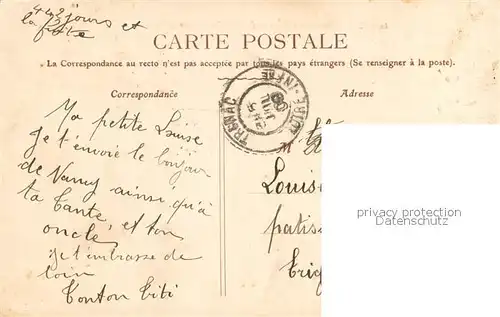 jours et
la
CARTE POSTALE
La Correspondance au recto n'est pas acceptée par tous les pays étrangers (Se renseigner à la poste).
Correspondance
Adresse
TRIGNAC
LOIRE-INFRE
Ma petite Louise
je t'envoie le bonjour
de Nancy ainsi qu'à
ta tante et ton
oncle
je t'embrasse de
loin
Tonton Titi
Louis
patis
Trig
privacy protection
Datenschutz